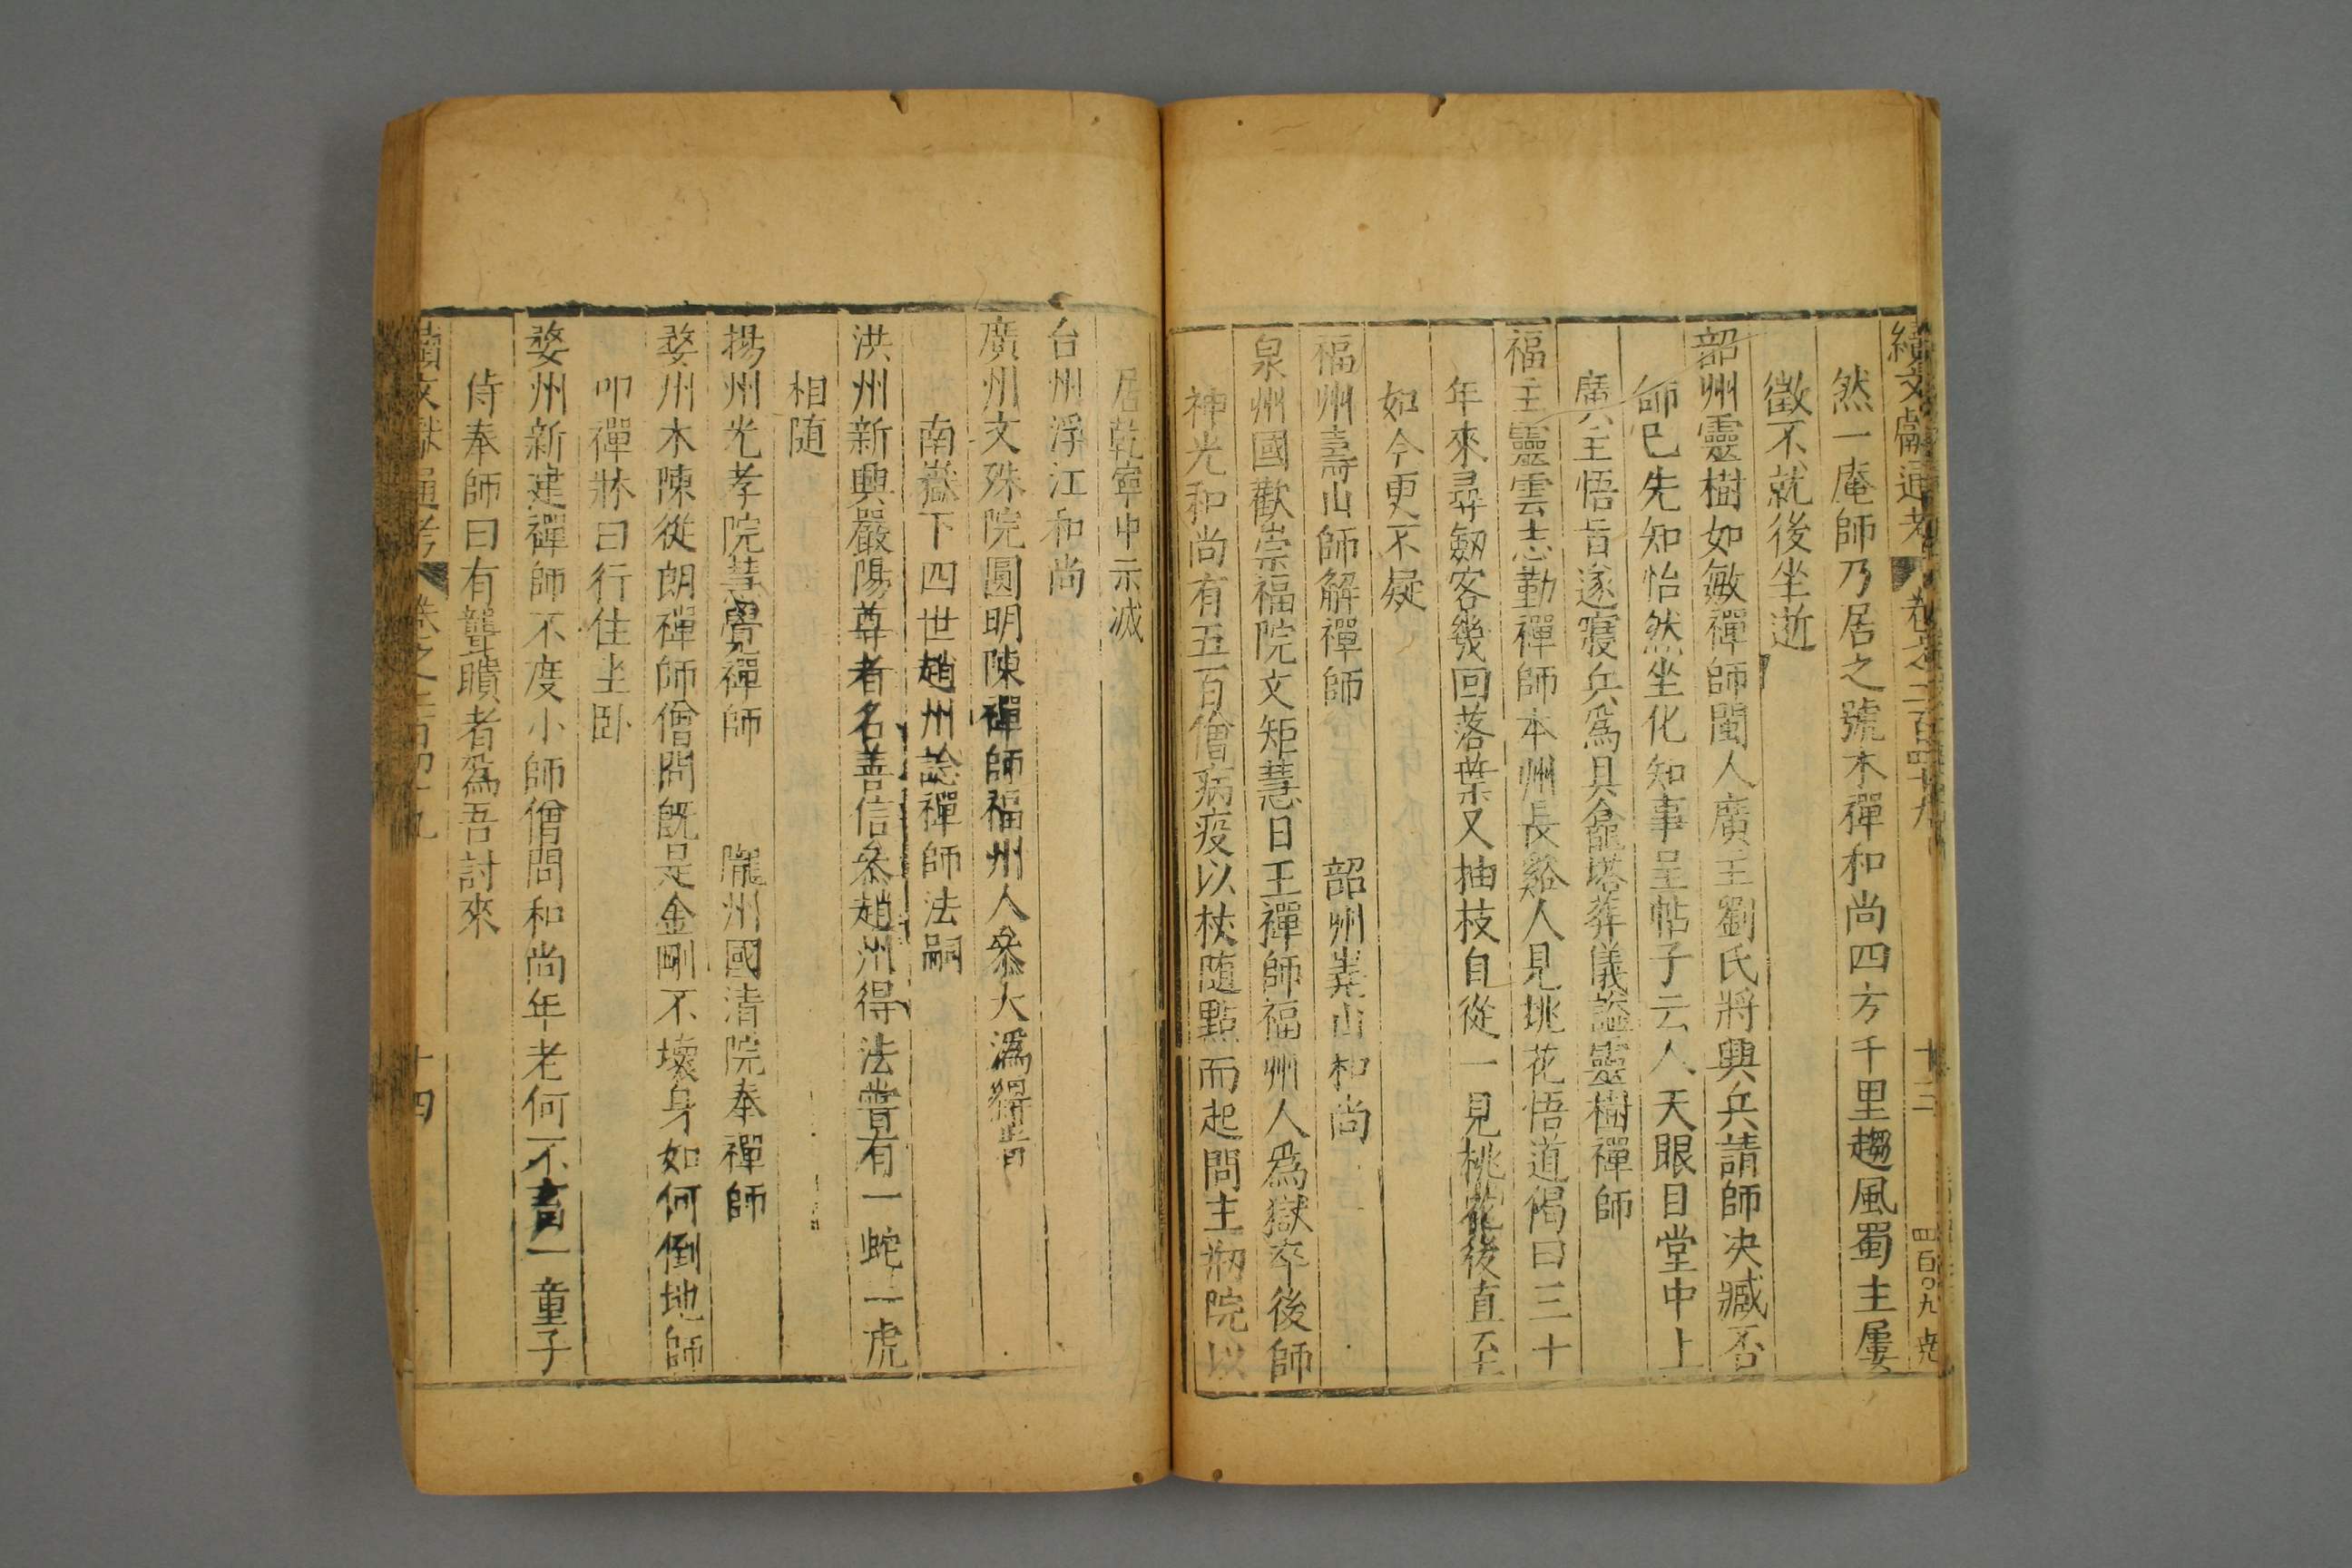 續文獻通考 卷之二百四十九 十三 四百〇九 尭
然一庵師乃居之號木禪和尚四方千里趨風蜀主屢
徵不就後坐逝
韶州靈樹如敏禪師閩人廣主劉氏將興兵請師决臧否
師已先知怡然坐化知事呈帖子云人天眼目堂中上
廣主悟旨遂寢兵爲具龕塔葬儀諡靈樹禪師
福主靈雲志勤禪師本州長谿人見桃花悟道偈曰三十
年來尋劒客幾回落葉又抽枝自從一見桃花後直至
如今更不疑
福州壽山師解禪師 韶州嶤山和尚
泉州國歡崇福院文矩慧日王禪師福州人爲獄卒後師
神光和尚有五百僧病疫以杖隨點而起閩主剏院以
居乾寧中示滅
台州浮江和尚
廣州文殊院圓明陳禪師福州人叅大潙得旨
南嶽下四世趙州諗禪師法嗣
洪州新興嚴陽尊者名善信叅趙州得法嘗有一蛇二虎
相随
揚州光孝院慧覺禪師 隴州國清院奉禪師
婺州木陳從朗禪師僧問旣是金剛不壞身如何倒地師
叩禪牀曰行住坐卧
婺州新建禪師不度小師僧問和尚年老何不畜一童子
侍奉師曰有聾聵者爲吾討來
續文獻通考 卷之二百四十九 十四